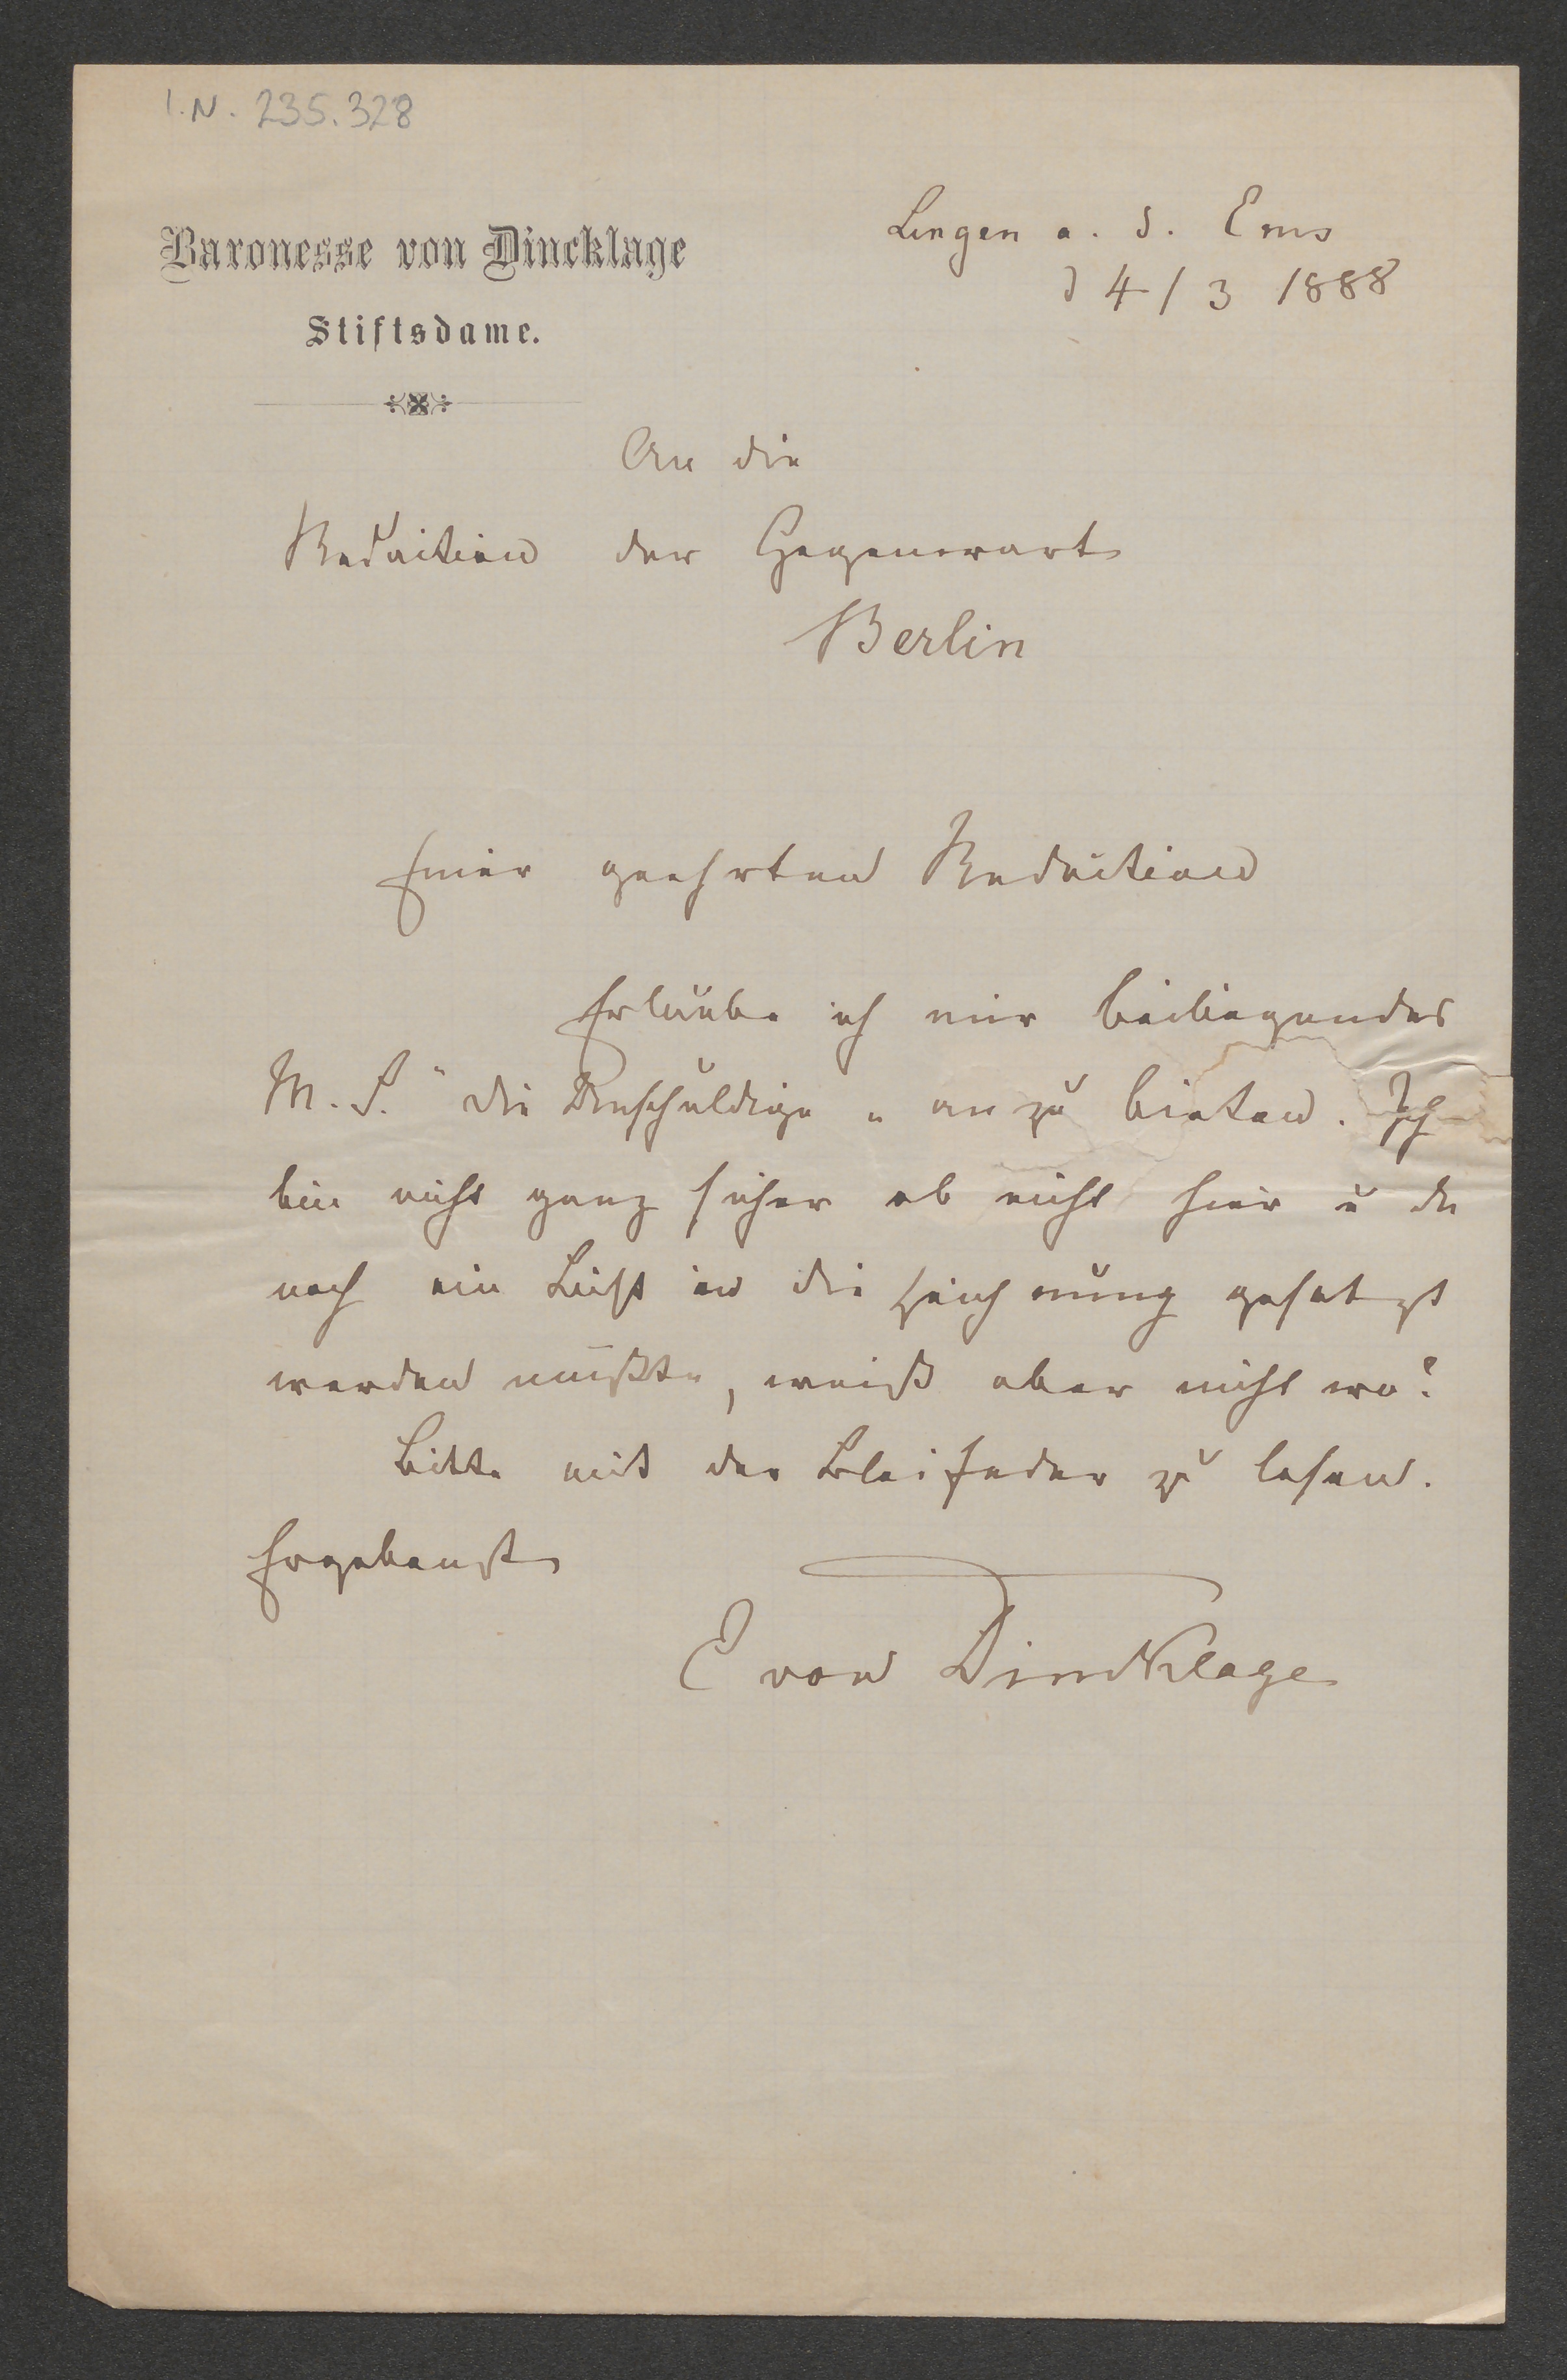 I.N. 235.328
Baronesse von Dincklage
Stiftsdame.
Lingen a. d. Ems
d 4/3 1888
An die
Redaction der Gegenwart
Berlin
Einer geehrten Redaction
Erlaube ich mir beiliegendes
M.S. "die Unschuldige" an zu bieten. Ich
bin nicht ganz sicher ob nicht hier u da
noch ein Licht in die Zeichnung gesetzt
werden müßte, weiß aber nicht wo?
Bitte mit der Bleifeder zu lesen.
Ergebenst
E von Dincklage